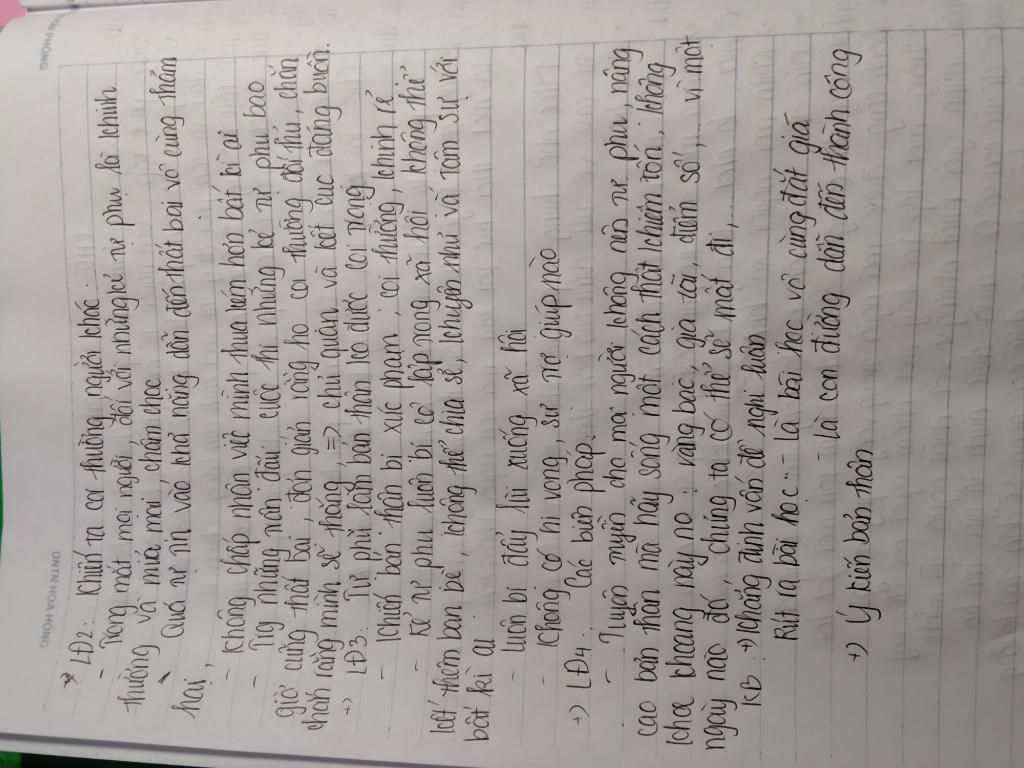 VĂN PHÒNG
DNTN HOA HỒNG
* LĐ2: Khiến ta coi thường người khác.
- Trong mắt mọi người đối với những kẻ tự phụ là khinh
thường và mỉa mai, châm chọc
* Quá tự tin vào khả năng dẫn đến thất bại vô cùng thảm
hại,
- Không chấp nhận việc mình thua kém hơn bất kì ai
- Trg những trận đấu, cuộc thi những kẻ tự phụ bao
giờ cũng thất bại, đơn giản rằng họ coi thường đối thủ, chắn
chắn rằng mình sẽ thắng, => chủ quan và kết cục đáng buồn.
+) LĐ3: Tự phụ làm bản thân ko được coi trọng
- Khiến bản thân bị xúc phạm, coi thường, khinh rẻ
- Kẻ tự phụ luôn bị cô lập trong xã hội, không thể
kết thêm bạn bè, không thể chia sẻ, khuyên như và tâm sự với
bất kì ai
- Luôn bị đẩy lùi xuống xã hội
- Không có hi vọng, sự trợ giúp nào
+) LĐ4: Các biện pháp.
- Tuyên truyền cho mọi người không nên tự phụ, nâng
cao bản thân mà hãy sống một cách thật khiêm tốn, không
khoe khoang này nọ: vàng bạc, gia tài, điểm số,... vì một
ngày nào đó, chúng ta có thể sẽ mất đi,
KB: +) Khẳng định vấn đề nghị luận
Rút ra bài học: - là bài học vô cùng đắt giá
- là con đường dẫn đến thành công
+) Ý kiến bản thân